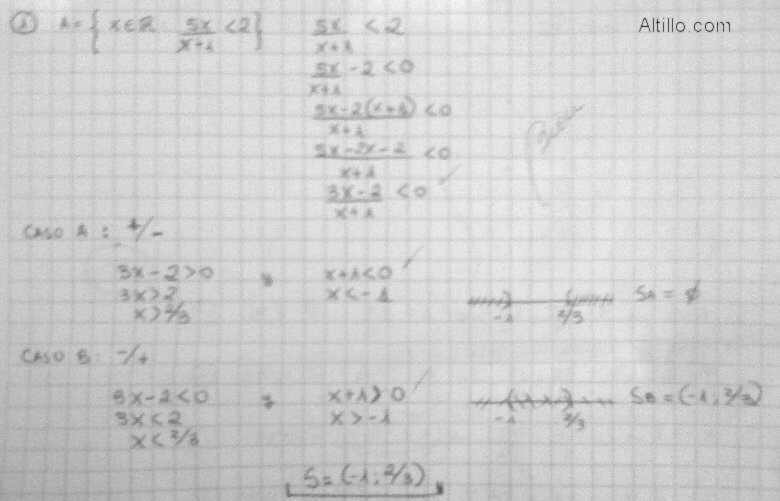 Altillo.com
① A = { x ∈ R 5x/(x+1) < 2 }
5x/(x+1) < 2
5x/(x+1) - 2 < 0
(5x-2(x+1))/(x+1) < 0
(5x-2x-2)/(x+1) < 0
(3x-2)/(x+1) < 0
CASO A : +/-
3x-2>0 y x+1<0
3x>2 x<-1
x>2/3
-1 2/3 SA = ∅
CASO B: -/+
3x-2<0 y x+1>0
3x<2 x>-1
x<2/3
-1 2/3 SB = (-1; 2/3)
S = (-1; 2/3)